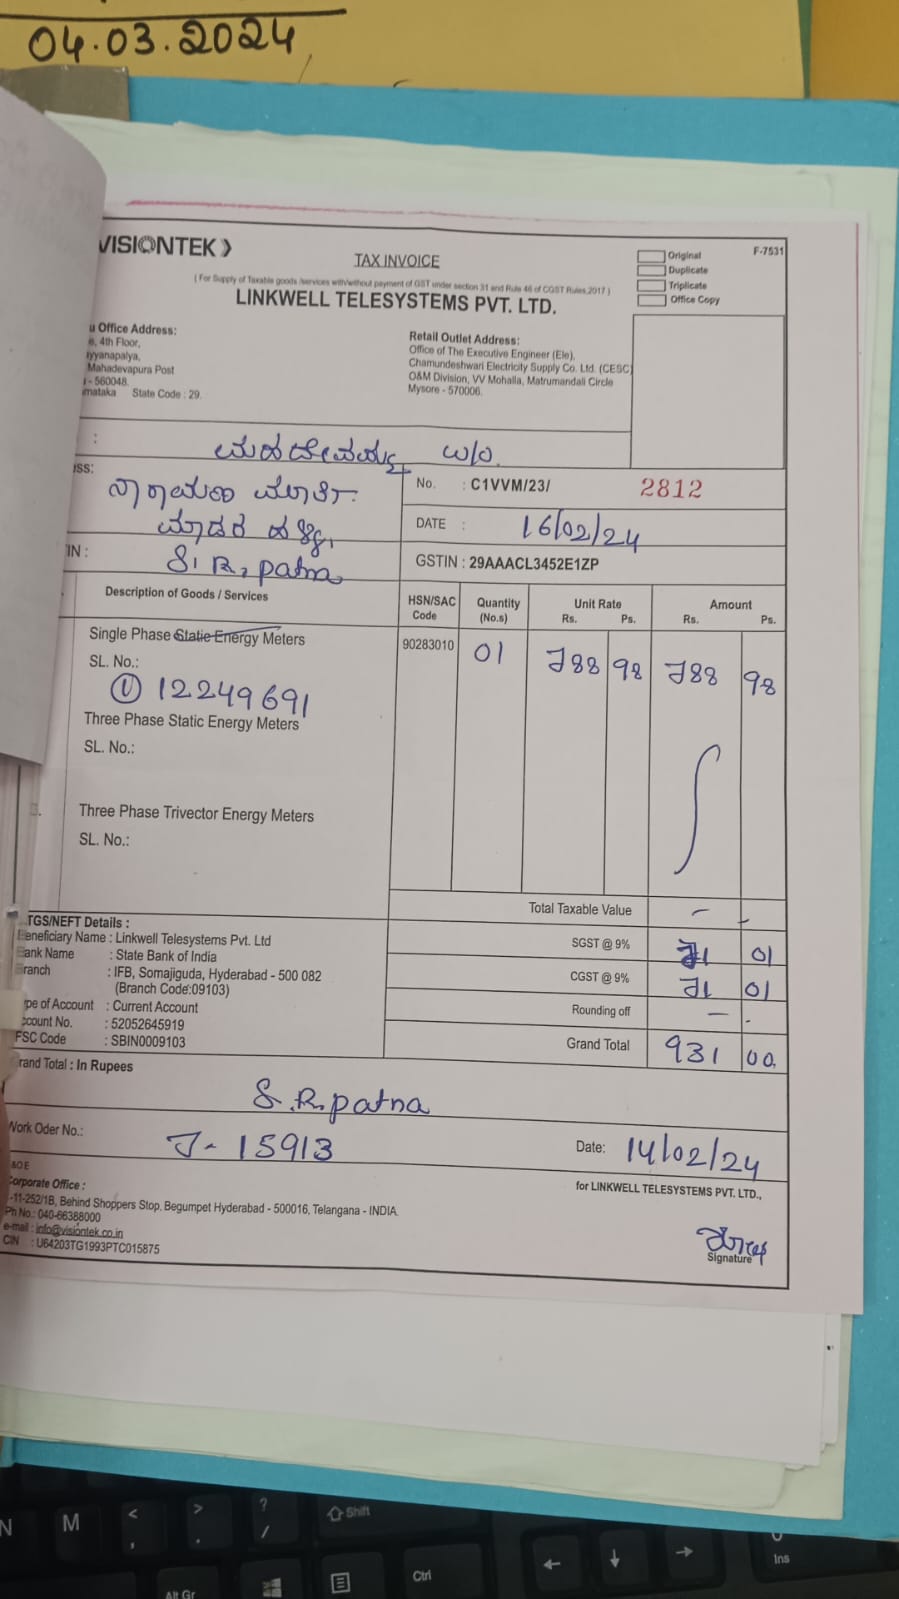 04.03.2024
VISIONTEK
TAX INVOICE
F-7531
Original
Duplicate
Triplicate
Office Copy
( For Supply of Taxable goods /services with/without payment of GST under section 31 and Rule 46 of CGST Rules,2017 )
LINKWELL TELESYSTEMS PVT. LTD.
u Office Address:
e, 4th Floor,
yyanapalya,
Mahadevapura Post
- 560048.
rnataka State Code : 29.
Retail Outlet Address:
Office of The Executive Engineer (Ele),
Chamundeshwari Electricity Supply Co. Ltd. (CESC)
O&M Division, VV Mohalla, Matrumandali Circle
Mysore - 570006.
: ಮಹದೇವಮ್ಮ w/o.
ess:
No. : C1VVM/23/ 2812
DATE : 16/02/24
IN : S. R. patna
GSTIN : 29AAACL3452E1ZP
Description of Goods / Services HSN/SAC Code Quantity (No.s) Unit Rate Rs. Ps. Amount Rs. Ps.
Single Phase Static Energy Meters 90283010 01 788 98 788 98
SL. No.:
① 12249691
Three Phase Static Energy Meters
SL. No.:
3. Three Phase Trivector Energy Meters
SL. No.:
Total Taxable Value - -
SGST @ 9% 71 01
CGST @ 9% 71 01
Rounding off - -
Grand Total 931 00.
TGS/NEFT Details :
Beneficiary Name : Linkwell Telesystems Pvt. Ltd
Bank Name : State Bank of India
Branch : IFB, Somajiguda, Hyderabad - 500 082
(Branch Code:09103)
ype of Account : Current Account
ccount No. : 52052645919
FSC Code : SBIN0009103
Grand Total : In Rupees
S. R. patna
Work Oder No.: J- 15913 Date: 14/02/24
&OE
Corporate Office :
-11-252/1B, Behind Shoppers Stop, Begumpet Hyderabad - 500016, Telangana - INDIA.
Ph No.: 040-66388000
e-mail : info@visiontek.co.in
CIN : U64203TG1993PTC015875
for LINKWELL TELESYSTEMS PVT. LTD.,
Signature
N M < , > . ? / Shift
Alt Gr Ctrl Ins